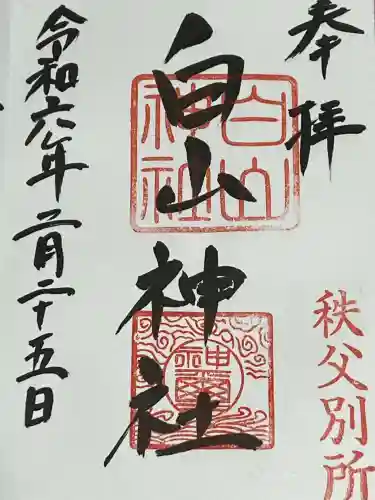 奉拝
秩父別所
白山神社
白山神社
令和六年二月二十五日